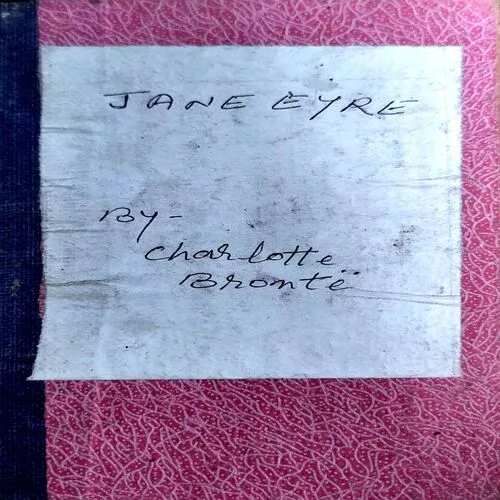 JANE EYRE
By -
Charlotte
Brontë